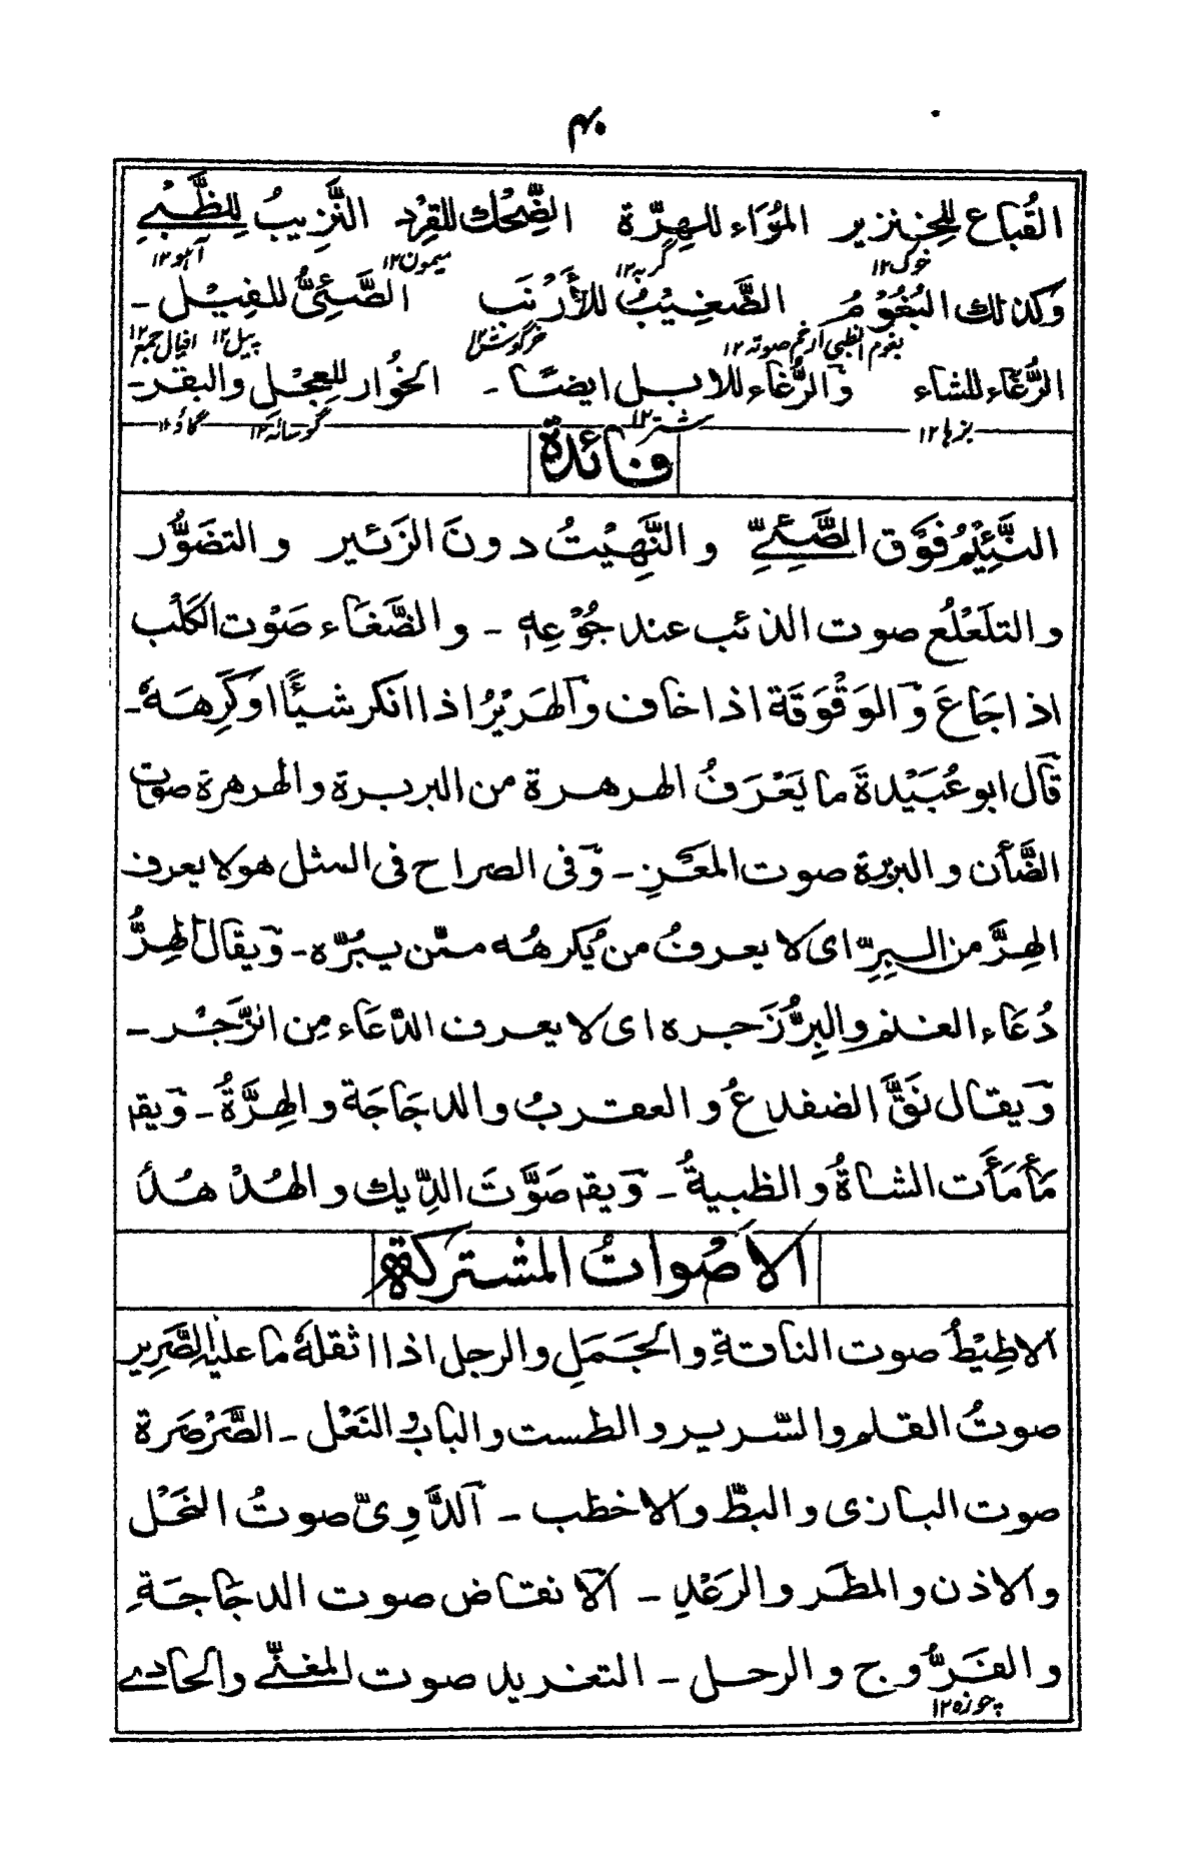 ۴۰
القُباع للخنزير المُوَاء للهِرَّة الضِّحْك للقِرْد النَّزِيبُ لِلظَّبْيِ
خوک۱۲ گربه۱۲ میمون۱۲ آہو۱۲
وكذلك البُغُوْمُ الضَّغِيْبُ للأَرْنَب الصَّئِىُّ للفِيْل ـ
بغوم الظبي ارخم صوته۱۲ خرگوش۱۲ پیل۱۲ افیال جمع۱۲
الرُّغَاء للشاء والرُّغَاء للابل ايضًا ـ الخُوار للعِجْل والبقر ـ
بزہا۱۲ شتر۱۲ گوسالہ۱۲ گاؤ۱۲
فائدة
النَّئِيْمُ فَوْق الصَّئِيِّ والنَّهِيْتُ دونَ الزَئير والتضَوُّر
والتلَعْلُع صوت الذئب عند جُوْعِه ـ والضَّغَاء صَوْت الكَلْب
اذا جَاعَ والوَقْوَقَة اذا خاف والهَرِيْرُ اذا انكر شيئًا اوكَرِهَهُ ـ
قال ابو عُبَيْدةَ ما يَعْرَفُ الهرهرة من البربرة والهرهرة صوت
الضَّأن والبربرة صوت المَعَزِ ـ وفى الصراح فى المثل هو لا يعرف
الهِرَّ من البِرِّ اى لا يعرفُ من يُكرهُه ممّن يبُرّه ـ ويقال الهِرُّ
دُعَاء الغنم والبِرُّ زَجره اى لا يعرف الدّعَاء مِن الزَّجْر ـ
ويقال نَقَّ الضفدعُ والعقربُ والدجَاجَة والهِرَّةُ ـ ويقم
مَأمَأَت الشاةُ والظبيةُ ـ ويقم صَوَّتَ الدِّيك والهُدْهُدُ
الاَصْواتُ المشتركة
الاطِيْطُ صوت الناقةِ والجَمَلِ والرجل اذا اثقلهٗ ما عليه الصَّرِير
صوتُ القلم والسّرير والطست والباب والنَعْل ـ الصَّرْصَرة
صوت البازى والبطّ والاخطب ـ الدَّوِىّ صوتُ النَحْل
والاذن والمطَر والرَعْدِ ـ الانقاض صوت الدجَاجَةِ
والفَرُّوج والرحل ـ التغريد صوت المغنّي والحادي
چوزہ۱۲